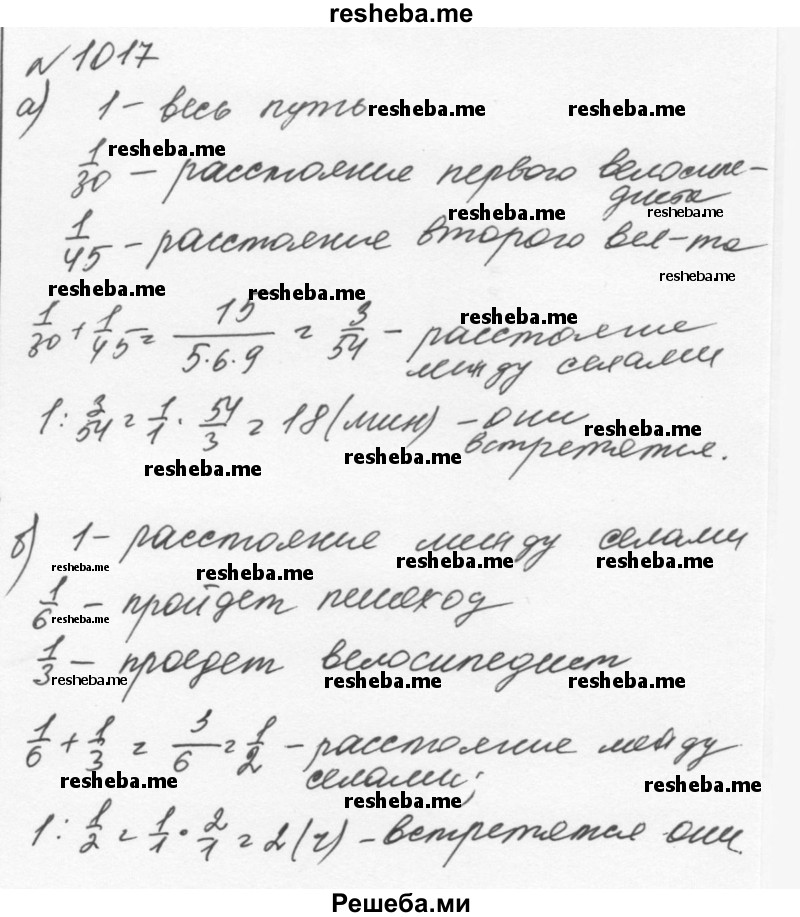 resheba.me
№1017
а) 1 - весь путь resheba.me resheba.me
1/30 resheba.me - расстояние первого велосипе-
диста
resheba.me resheba.me
1/45 - расстояние второго вел-та
resheba.me
resheba.me resheba.me
1/30 + 1/45 = 15/(5·6·9) = 3/54 - расстояние resheba.me
между селами
1 : 3/54 = 1/1 · 54/3 = 18 (мин) - они resheba.me
встретятся.
resheba.me resheba.me
б) 1 - расстояние между селами
resheba.me resheba.me resheba.me resheba.me
1/6 - пройдет пешеход
resheba.me
1/3 - проедет велосипедист
resheba.me resheba.me resheba.me
1/6 + 1/3 = 3/6 = 1/2 - расстояние между
селами;
resheba.me resheba.me resheba.me
1 : 1/2 = 1/1 · 2/1 = 2 (ч) - встретятся они.
Решеба.ми